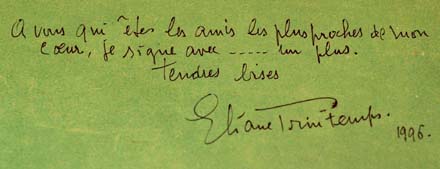 A vous qui êtes les amis les plus proches de mon
cœur, je signe avec ..... un plus.
Tendres bises
Eliane Printemps.
1996.